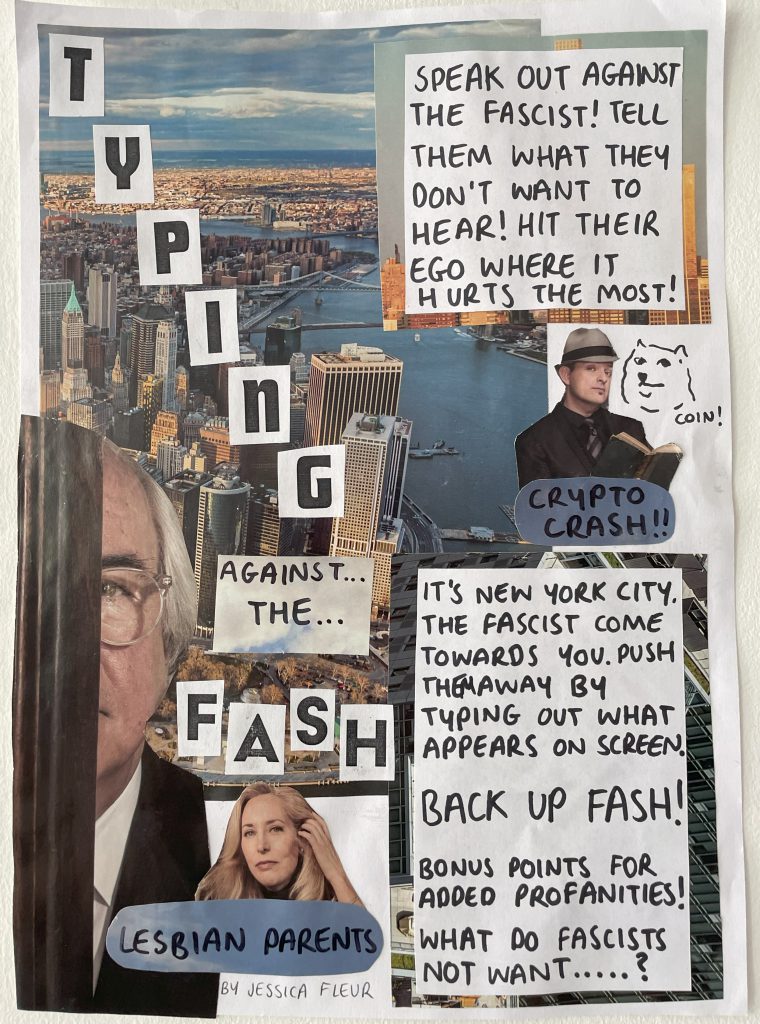 TYPING
AGAINST...
THE...
FASH
SPEAK OUT AGAINST
THE FASCIST! TELL
THEM WHAT THEY
DON'T WANT TO
HEAR! HIT THEIR
EGO WHERE IT
HURTS THE MOST!
COIN!
CRYPTO
CRASH!!
IT'S NEW YORK CITY.
THE FASCIST COME
TOWARDS YOU. PUSH
THEM AWAY BY
TYPING OUT WHAT
APPEARS ON SCREEN.
BACK UP FASH!
BONUS POINTS FOR
ADDED PROFANITIES!
WHAT DO FASCISTS
NOT WANT.....?
LESBIAN PARENTS
BY JESSICA FLEUR